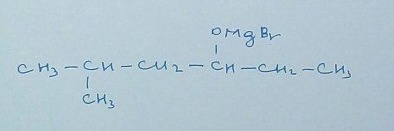 OMgBr
CH3-CH-CH2-CH-CH2-CH3
CH3